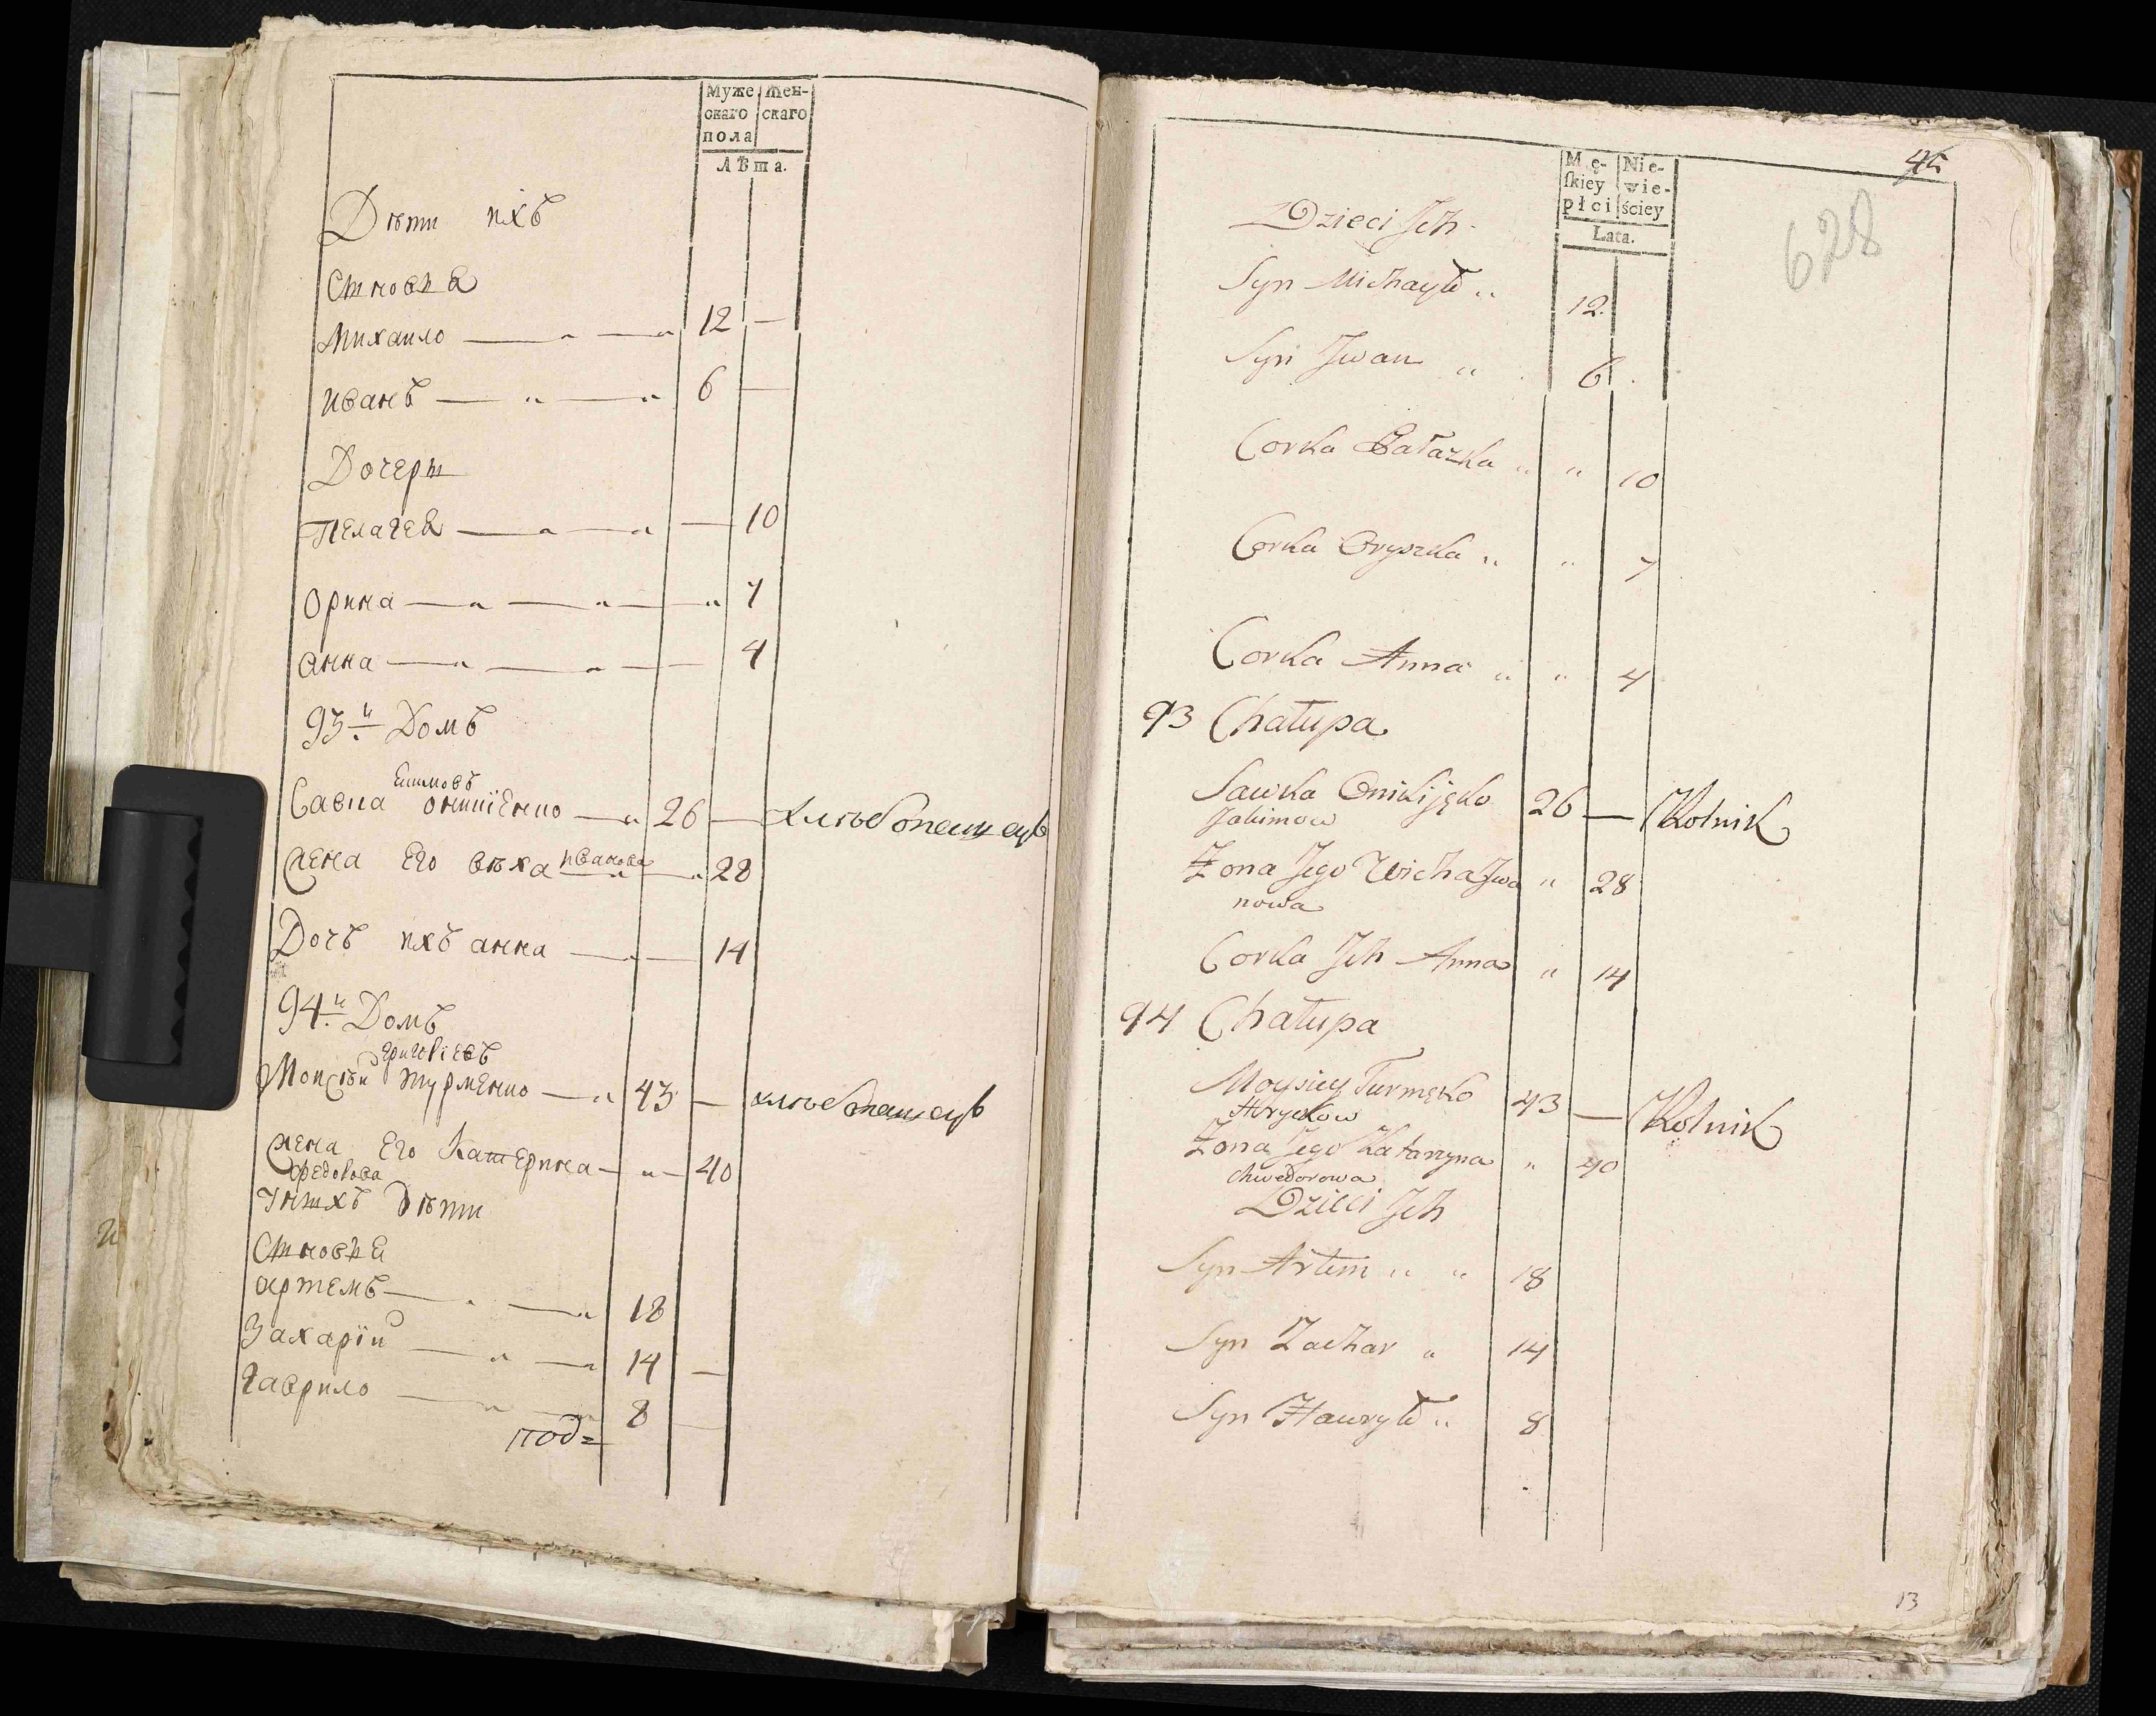 Муже
скаго
пола
Жен-
скаго
Лѣта.
Дѣти ихъ
Сыновья
Михаило 12 —
Иванъ 6 —
Дочеры
Пелагея — 10
Орина 7
Анна — 4
93й Домъ
Екимовъ
Савка Оникіенко 26 — хлѣбопашецъ
жена Его Вѣха Иванова 28
Дочъ ихъ Анна — 14
94й Домъ
Григоріевъ
Моисѣй Турменко 43 — хлѣбопашецъ
жена Его Катерина 40
Федорова
У ныхъ дѣти
Сыновья
Артемъ 18
Захарій 14 —
Гаврило 8 —
под=
Mę-
ſkiey
płci
Nie-
wie-
ściey
Lata.
628
Dzieci Jch
Syn Michayło 12
Syn Jwan 6
Corka Pałazka " 10
Corka Oryszka " 7
Corka Anna " 4
93 Chałupa
Sawka Onikijęko 26 — Rolnik
Jakimow
Żona Jego Wicha Jwa " 28
nowa
Corka Jch Anna " 14
94 Chałupa
Moysiey Turmęko 43 — Rolnik
Hryckow
Żona Jego Katarzyna " 40
Chwedorowa
Dzieci Jch
Syn Artem 18
Syn Zachar 14
Syn Hawryło 8
13